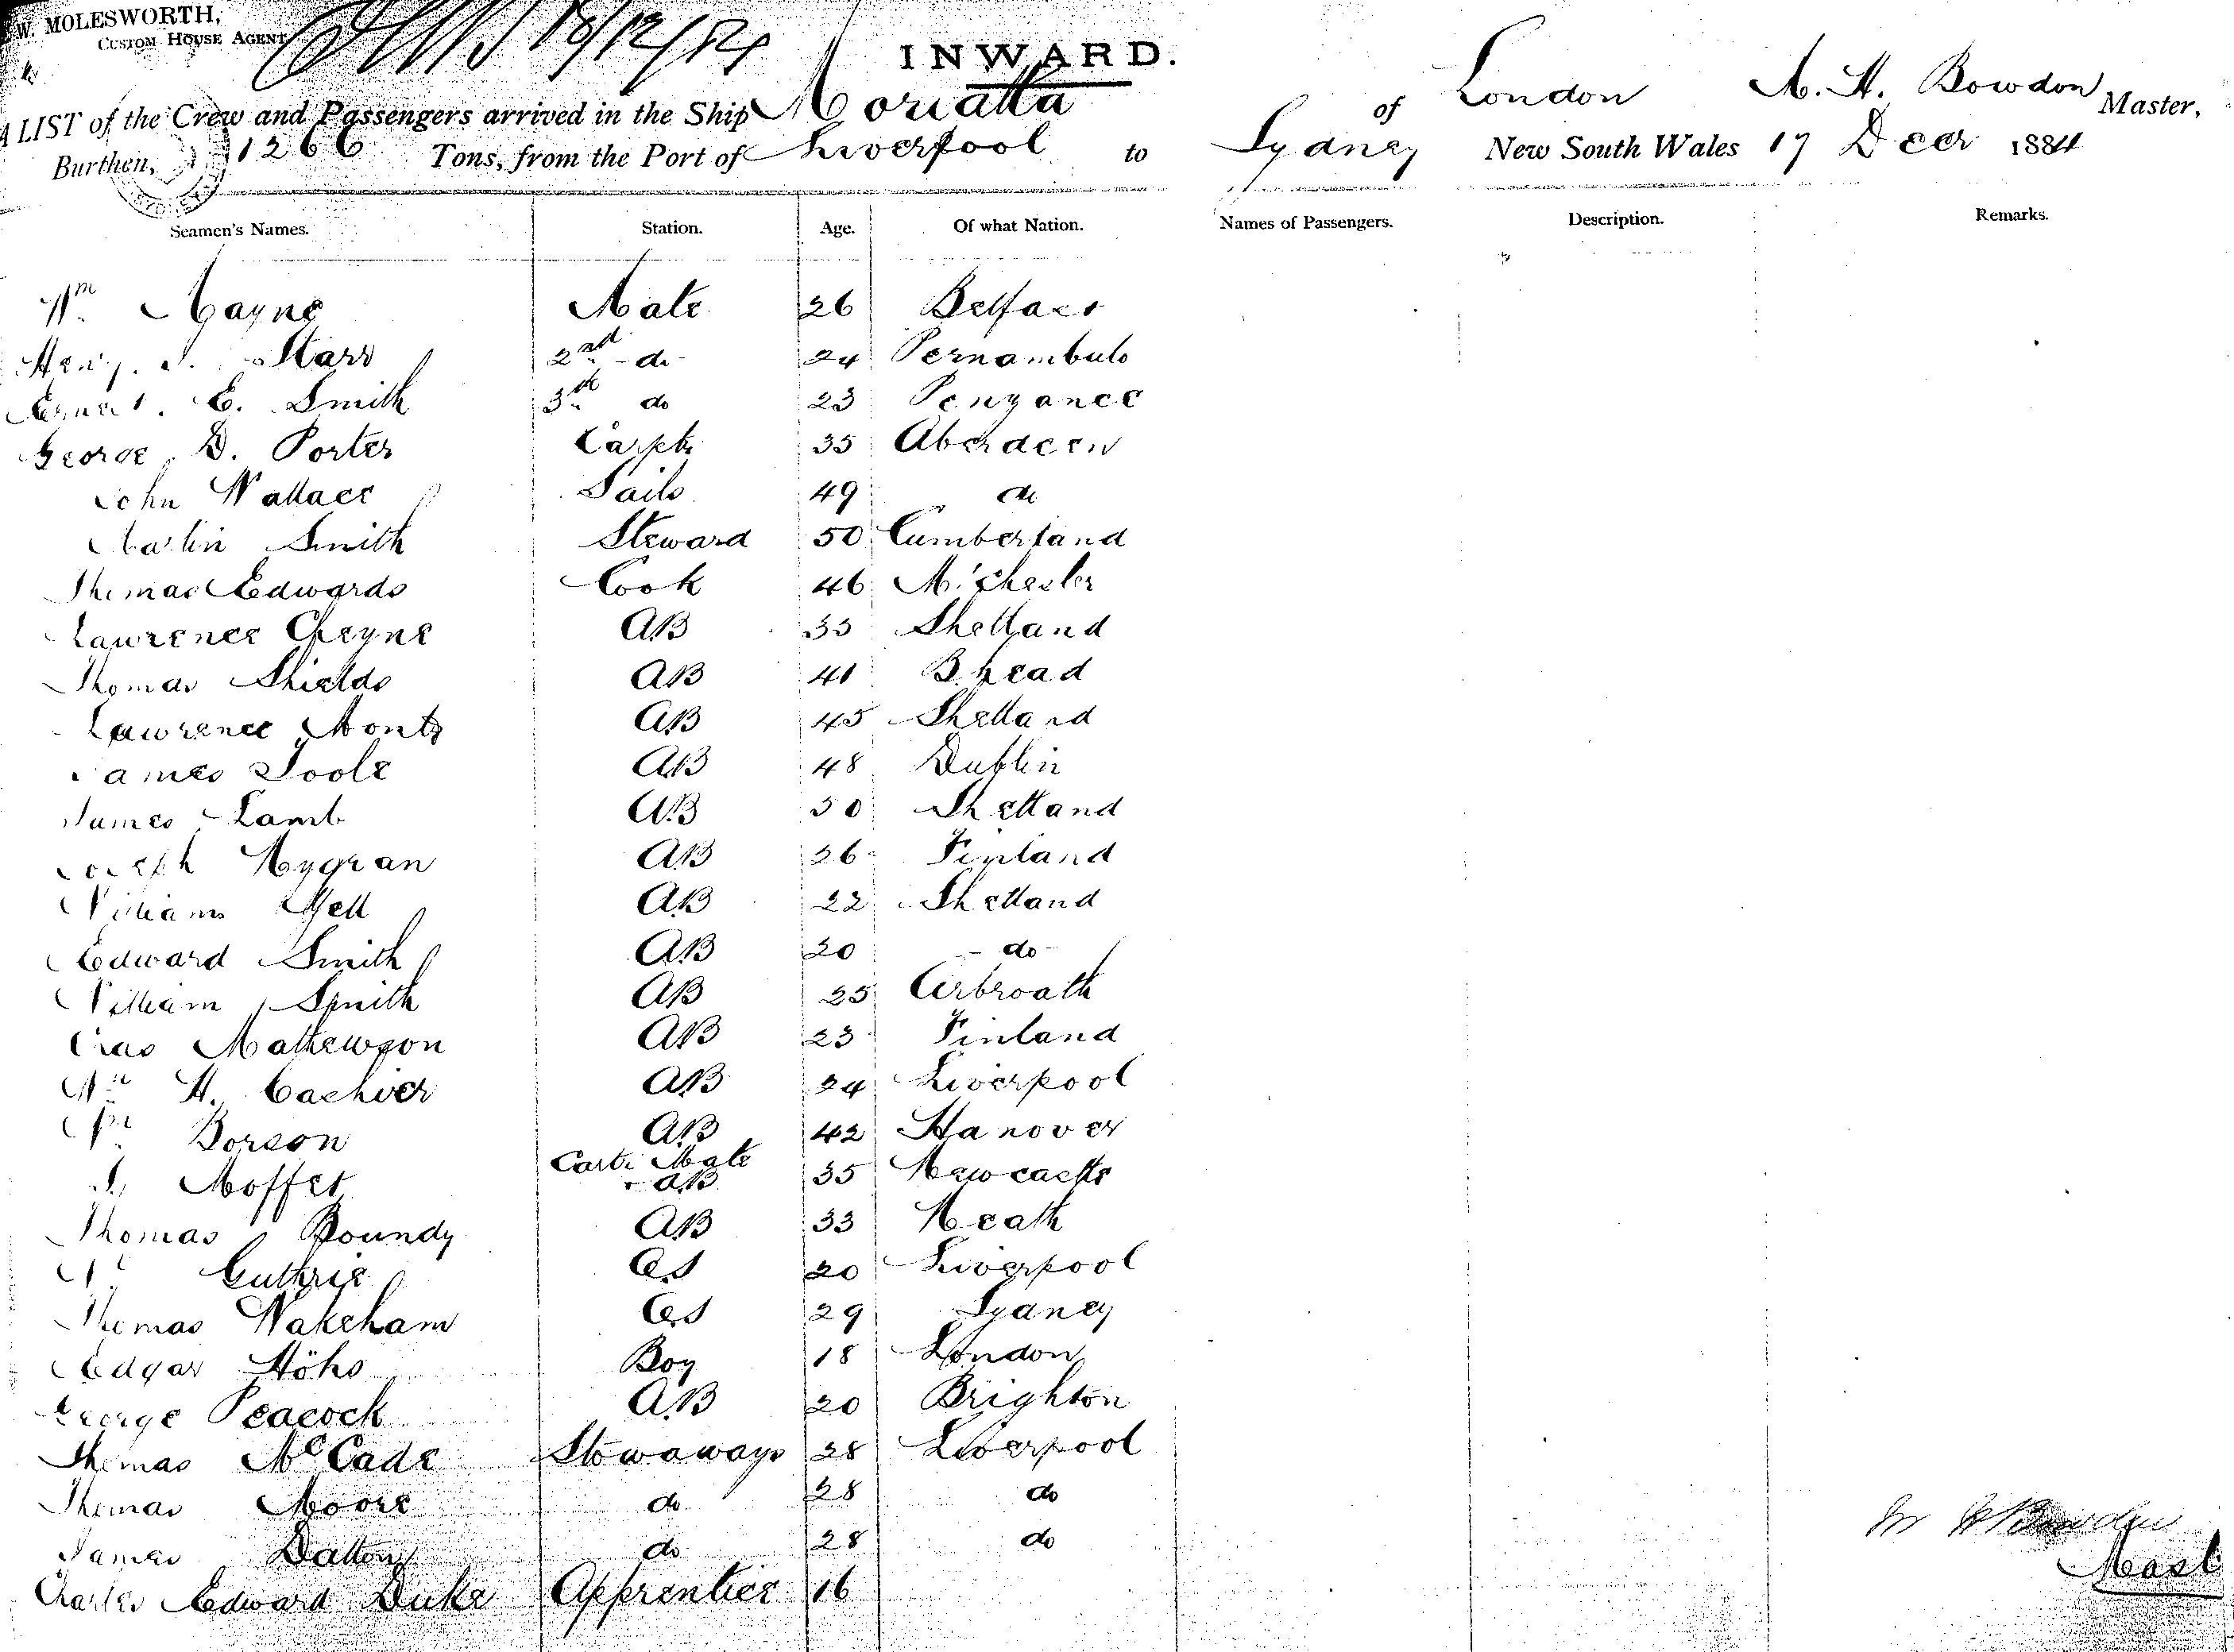 W. MOLESWORTH,
CUSTOM HOUSE AGENT
18/12/84
INWARD.
A LIST of the Crew and Passengers arrived in the Ship Moriatta of London M. H. Bowdon Master,
Burthen, 1266 Tons, from the Port of Liverpool to Sydney New South Wales 17 Decr 1884
Seamen's Names. Station. Age. Of what Nation. Names of Passengers. Description. Remarks.
Wm Mayne Mate 26 Belfast
Heny. Starr 2nd do 24 Pernambuco
Ernest E. Smith 3rd do 23 Penzance
George D. Porter Carptr 35 Aberdeen
John Wallace Sails 49 do
Martin Smith Steward 50 Cumberland
Thomas Edwards Cook 46 M.chester
Lawrence Cheyne AB 33 Shetland
Thomas Shields AB 41 B.head
Lawrence AB 45 Shetland
James Toole AB 48 Dublin
James Lamb AB 50 Shetland
Joseph Nygran AB 26 Finland
William Yell AB 22 Shetland
Edward Smith AB 20 do
William Smith AB 25 Arbroath
Mathewson AB 23 Finland
Wm H. AB 24 Liverpool
Dorson AB 42 Hanover
Moffet Mate AB 35 Newcastle
Thomas Poundy AB 33 Neath
Guthrie OS 20 Liverpool
Thomas Wakeham OS 29 Sydney
Edgar Höhs Boy 18 London
George Peacock AB 20 Brighton
Thomas McCade Stowaways 28 Liverpool
Thomas Moore do 28 do
James Dalton do 28 do
Charles Edward Duke Apprentice 16
M H Bowdon
Mast